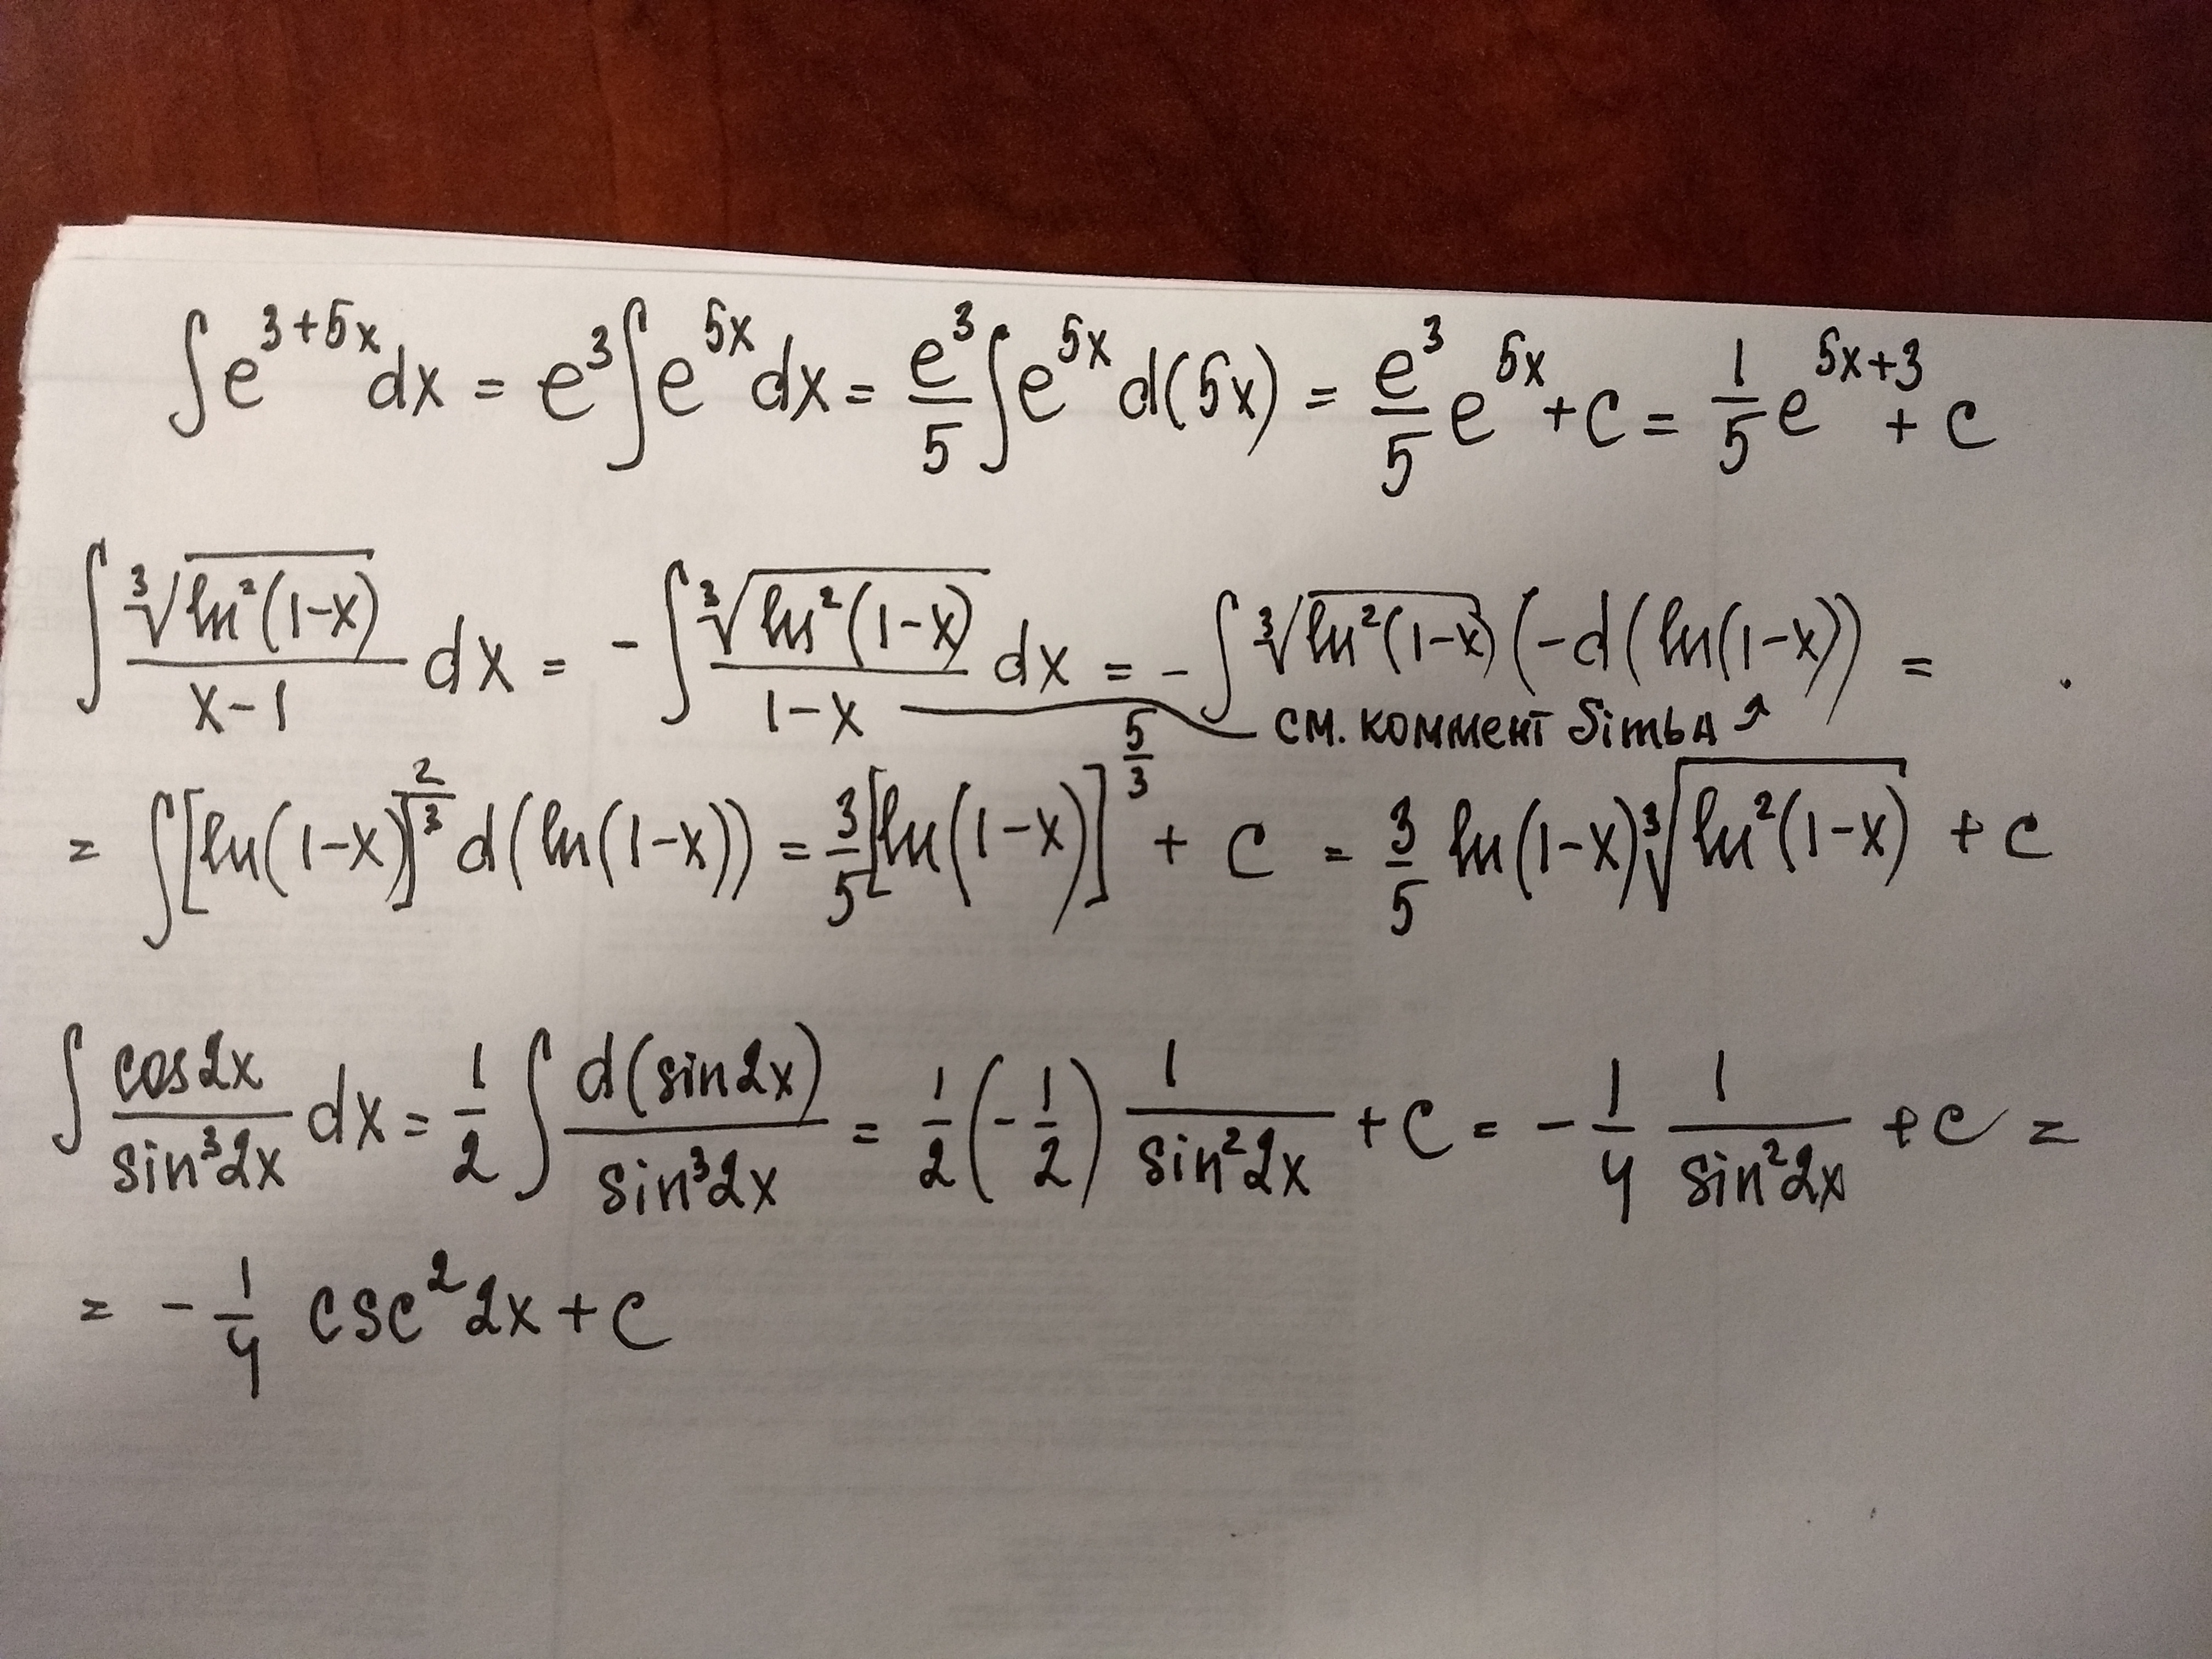 ∫e^{3+5x}dx = e³∫e^{5x}dx = e³/5 ∫e^{5x}d(5x) = e³/5 e^{5x} + c = 1/5 e^{5x+3} + c
∫ ∛(ln²(1-x))/(x-1) dx = -∫ ∛(ln²(1-x))/(1-x) dx = -∫ ∛(ln²(1-x)) (-d(ln(1-x)) =
см. коммент SimbA ↗
= ∫[ln(1-x)]^{2/3} d(ln(1-x)) = 3/5 [ln(1-x)]^{5/3} + c = 3/5 ln(1-x) ∛(ln²(1-x)) + c
∫ cos2x/sin³2x dx = 1/2 ∫ d(sin2x)/sin³2x = 1/2 (-1/2) 1/sin²2x + c = -1/4 1/sin²2x + c =
= -1/4 csc²2x + c